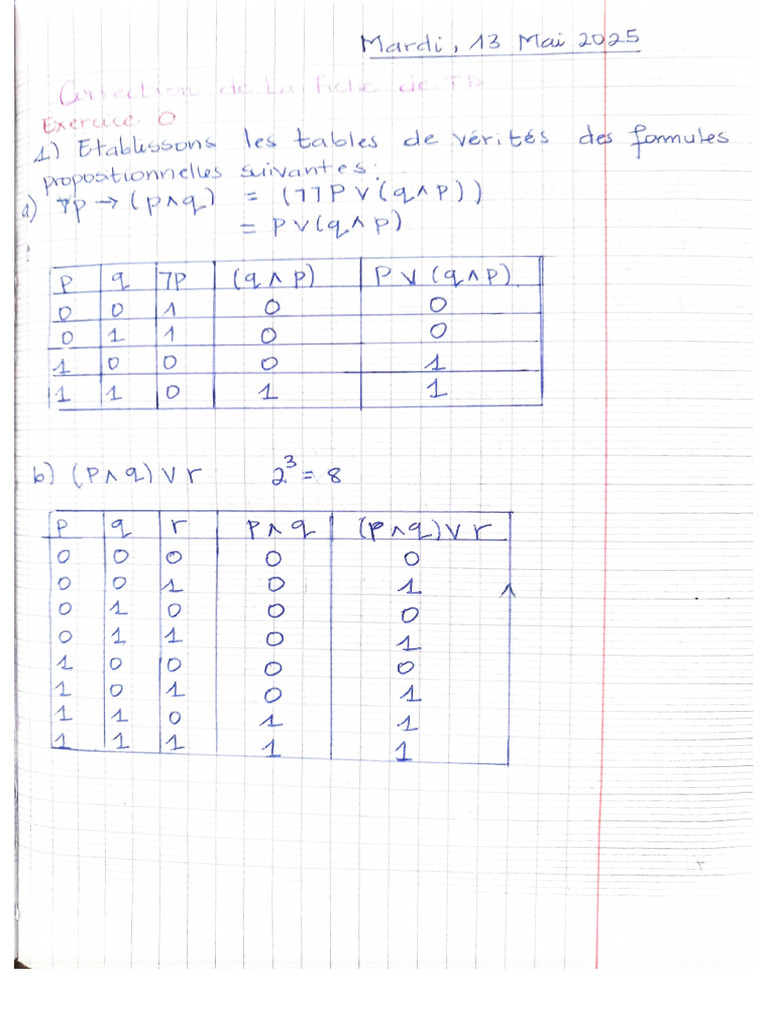 Mardi, 13 Mai 2025
Correction de La fiche de TD
Exercice 0
1) Etablissons les tables de vérités des formules
propositionnelles suivantes:
a) ¬p → (p∧q) = (¬¬P ∨ (q∧p))
= P ∨ (q∧p)
p q ¬P (q∧p) P ∨ (q∧p)
0 0 1 0 0
0 1 1 0 0
1 0 0 0 1
1 1 0 1 1
b) (p∧q) ∨ r 2³ = 8
p q r p∧q (p∧q) ∨ r
0 0 0 0 0
0 0 1 0 1
0 1 0 0 0
0 1 1 0 1
1 0 0 0 0
1 0 1 0 1
1 1 0 1 1
1 1 1 1 1